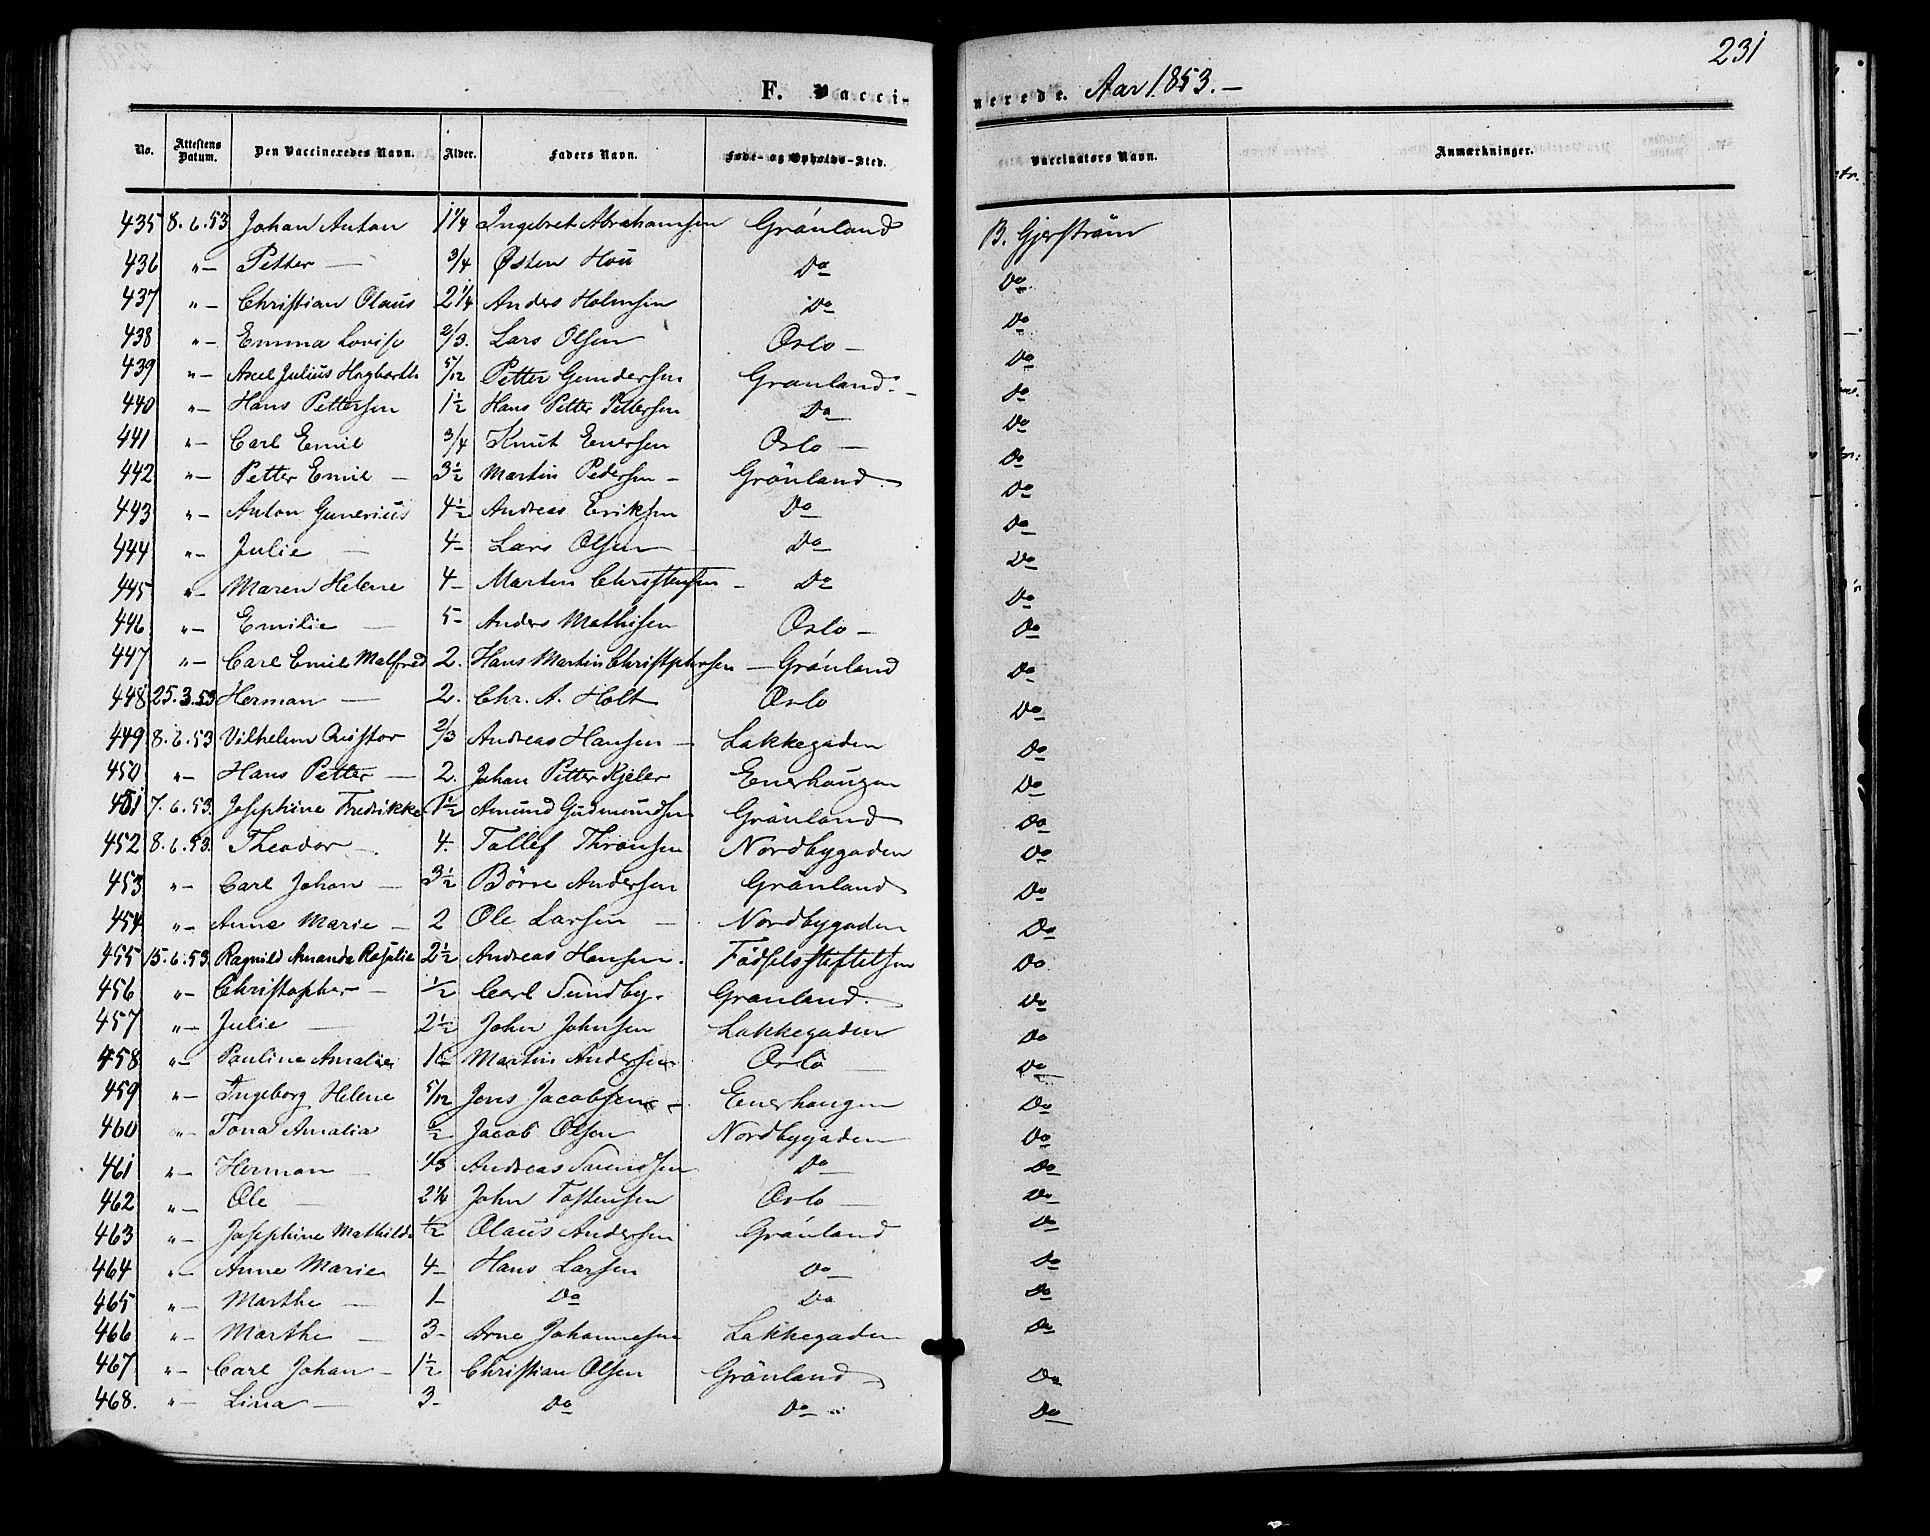 231
F. Vaccinerede. Aar 1853. —
No. Attestens Datum. Den Vaccineredes Navn. Alder. Faders Navn. Føde- og Opholds-Sted. Vaccinators Navn. Anmærkninger.
435 8.6.53 Johan Anton 1 1/4 Ingebret Abrahamsen Grönland B. Gjerström
436 "— Petter — 3/4 Østen Hou Do Do
437 "— Christian Olaus 2 1/4 Anders Holmsen Do Do
438 "— Emma Lovise 2/3. Lars Olsen Oslo — Do
439 "— Axel Julius Hagbarth 5/12 Petter Gundersen Grönland. — Do
440 "— Hans Pettersen 1 1/2 Hans Petter Pettersen Do Do
441 "— Carl Emil 3/4 Knut Enersen Oslo — Do
442 "— Petter Emil — 3 1/2 Martin Pedersen — Grönland Do
443 "— Anton Gunerius 4 1/2 Andreas Eriksen Do Do
444 "— Julie — 4 — Lars Olsen — Do Do
445 "— Maren Helene 4 — Martin Christensen — Do Do
446 "— Emilie — 5 — Anders Mathisen Oslo — Do
447 "— Carl Emil Malfred 2. Hans Martin Christphersen — Grönland Do
448 25.3.53 Herman — 2. Chr. A. Holt Oslo Do
449 8.6.53 Vilhelm Christor 2/3 Andreas Hansen — Lakkegaden Do
450 "— Hans Petter — 2. Johan Petter Kjeler Enerhaugen Do
451 7.6.53. Josephine Fredrikke 1 1/2 Amund Gudmundsen Grönland Do
452 8.6.53. Theodor — 4. Tollef Thronsen Nordbygaden Do
453 "— Carl Johan — 3 1/2 Börre Andersen Grönland Do
454 "— Anne Marie — 2 Ole Larsen — Nordbygaden Do
455 15.6.53 Ragnild Amanda Rosalie 2 1/2 Andreas Hansen. Födselsstiftelsen Do
456 "— Christopher — 1/2 Carl Sundby. Grönland. Do
457 "— Julie — 2 1/2 John Johnsen Lakkegaden Do
458 "— Pauline Amalie Martin Andersen Oslo — Do
459 "— Ingeborg Helene 5/12 Jens Jacobsen — Enerhaugen Do
460 "— Tona Amalia Jacob Olsen Nordbygaden Do
461 "— Herman — 1/3 Andreas Svendsen Do Do
462 "— Ole — 2 1/4 John Tostensen Oslo — Do
463 "— Josephine Mathilde 1/2 Olaus Andersen Grönland Do
464 "— Anne Marie 4 — Hans Larsen Do Do
465 "— Marthe — 1 — Do Do Do
466 "— Marthe — 3 — Arne Johannesen Lakkegaden Do
467 "— Carl Johan — 1 1/2 Christian Olsen Grönland — Do
468. "— Lina — 3 — Do Do " Do